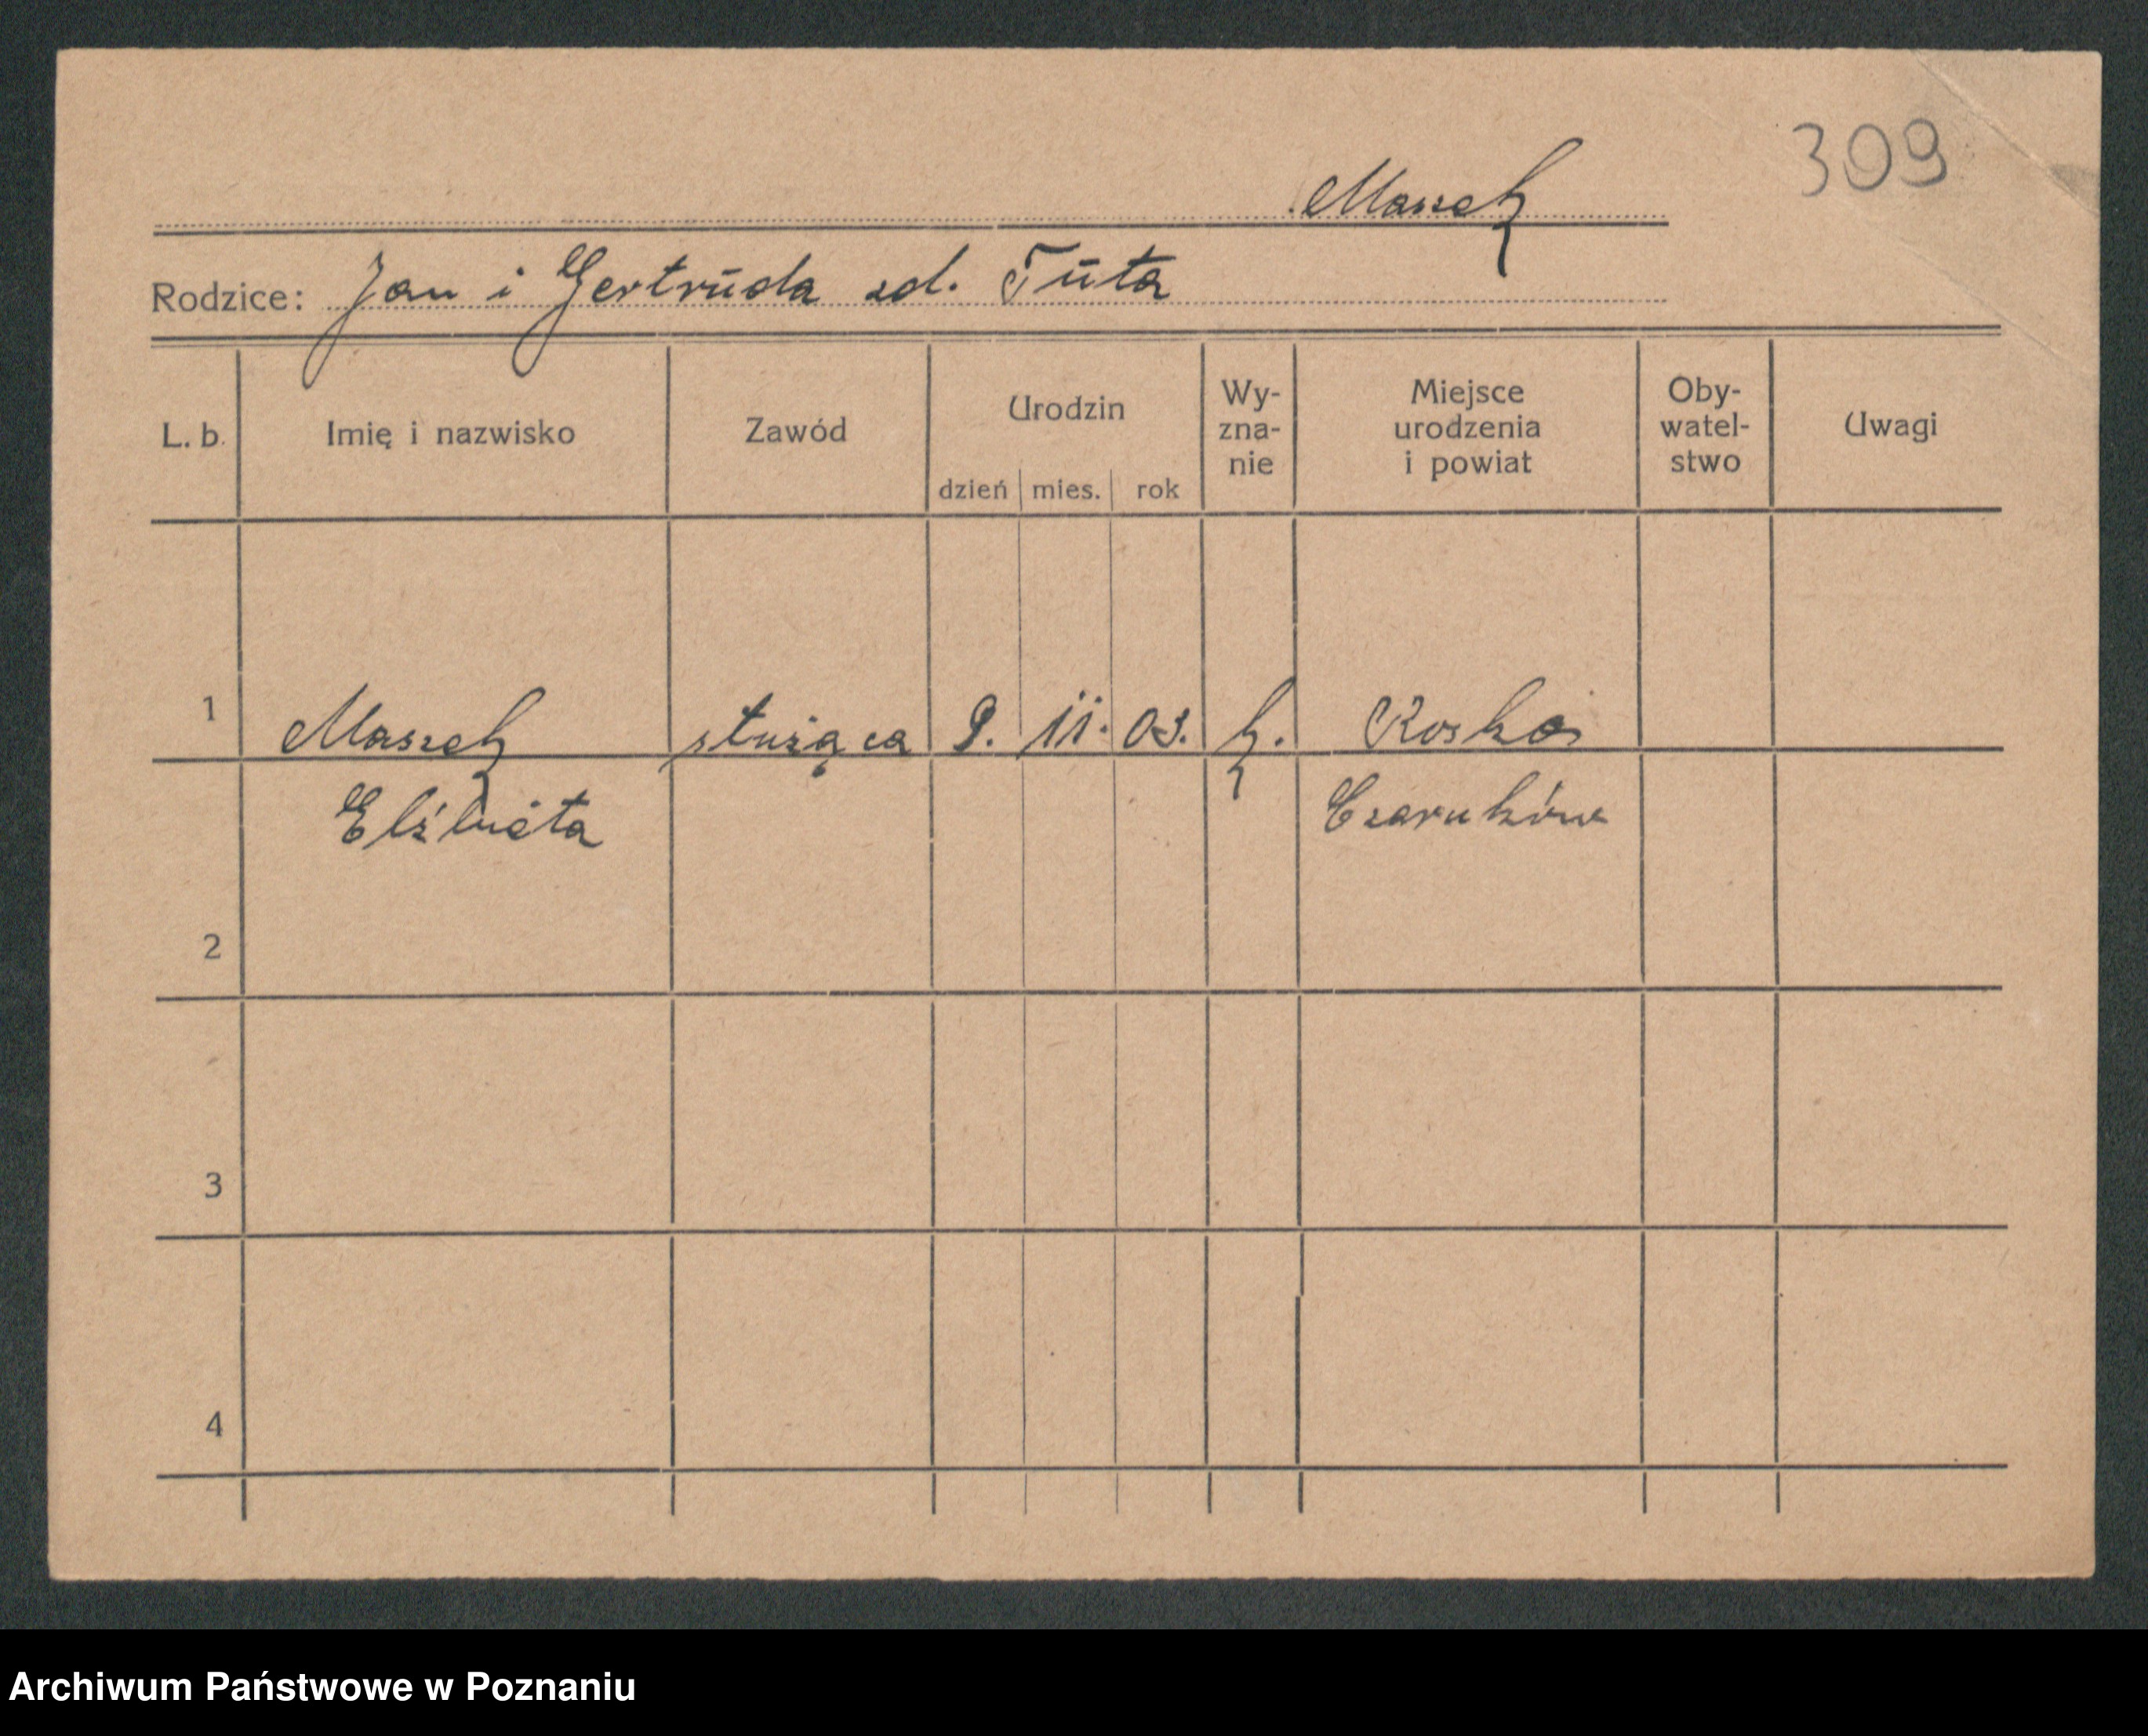 309
Maszek
Rodzice: Jan i Gertruda zd. Tuta
L. b. Imię i nazwisko Zawód Urodzin dzień mies. rok Wy-zna-nie Miejsce urodzenia i powiat Oby-watel-stwo Uwagi
1 Maszek służąca 9. 11. 03. k. Rosko
Elżbieta Czarnków
2
3
4
Archiwum Państwowe w Poznaniu